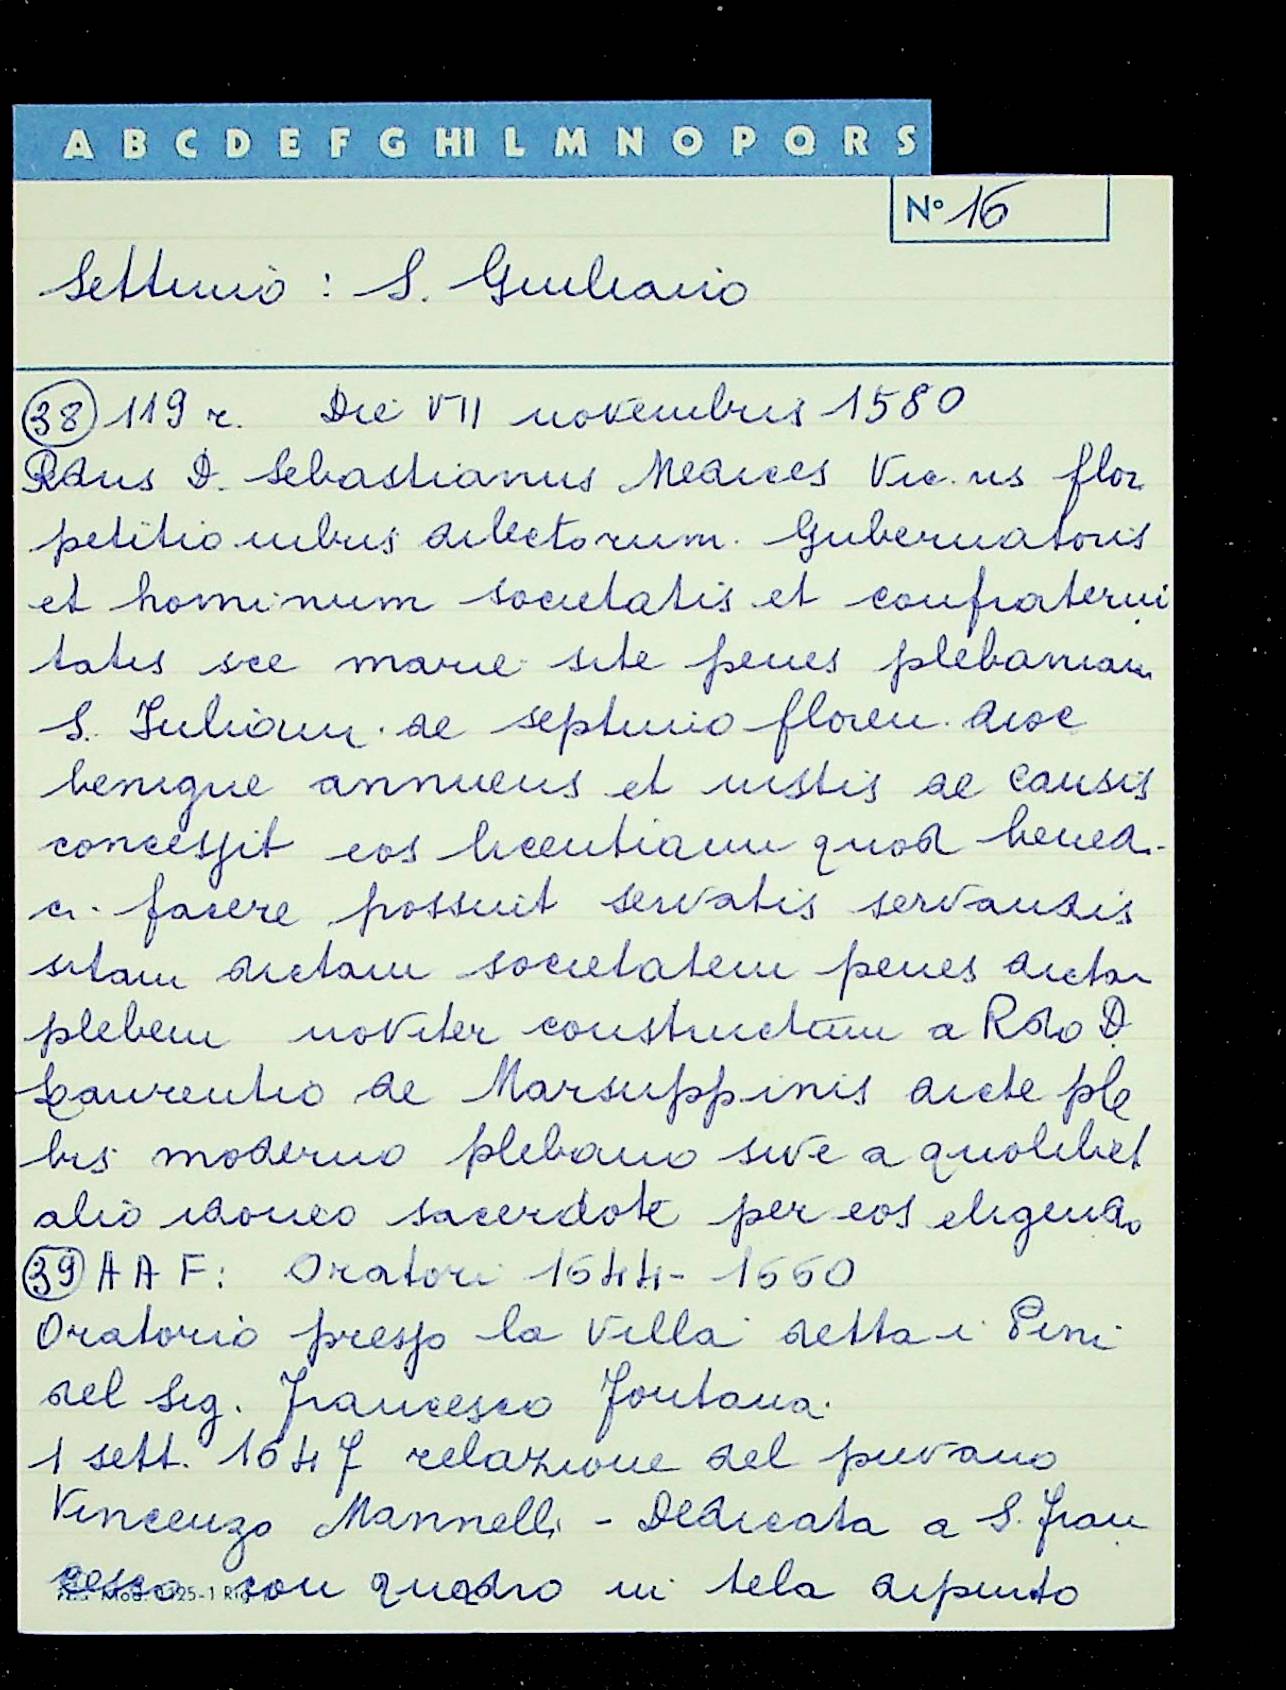 A B C D E F G HI L M N O P Q R S
N° 16
Settimo : S. Giuliano
38 119 r. Die VII novembris 1580
Rdus D. Sebastianus Medices Vic. us flor
petitionibus dilectorum. Gubernatoris
et hominum societatis et confraterni
tatis sce marie site penes plebaniam
S. Iuliani. de septimio floren. dioc
benigne annuens et iustis de causis
concessit eos licentiam quod bened.
ci. facere possuit servatis servandis
sitam dictam societatem penes dictam
plebem noviter constructam a Rdo D.
Laurentio de Marsuppinis dicte ple
bis moderno plebano sive a quolibet
alio idoneo sacerdote per eos eligendo
39 A A F: Oratori 1644- 1660
Oratorio presso la Villa detta i Pini
del Sig. Francesco Fontana.
1 sett. 1647 relazione del pievano
Vincenzo Mannelli - Dedicata a S. Fran
cesco con quadro in tela dipinto